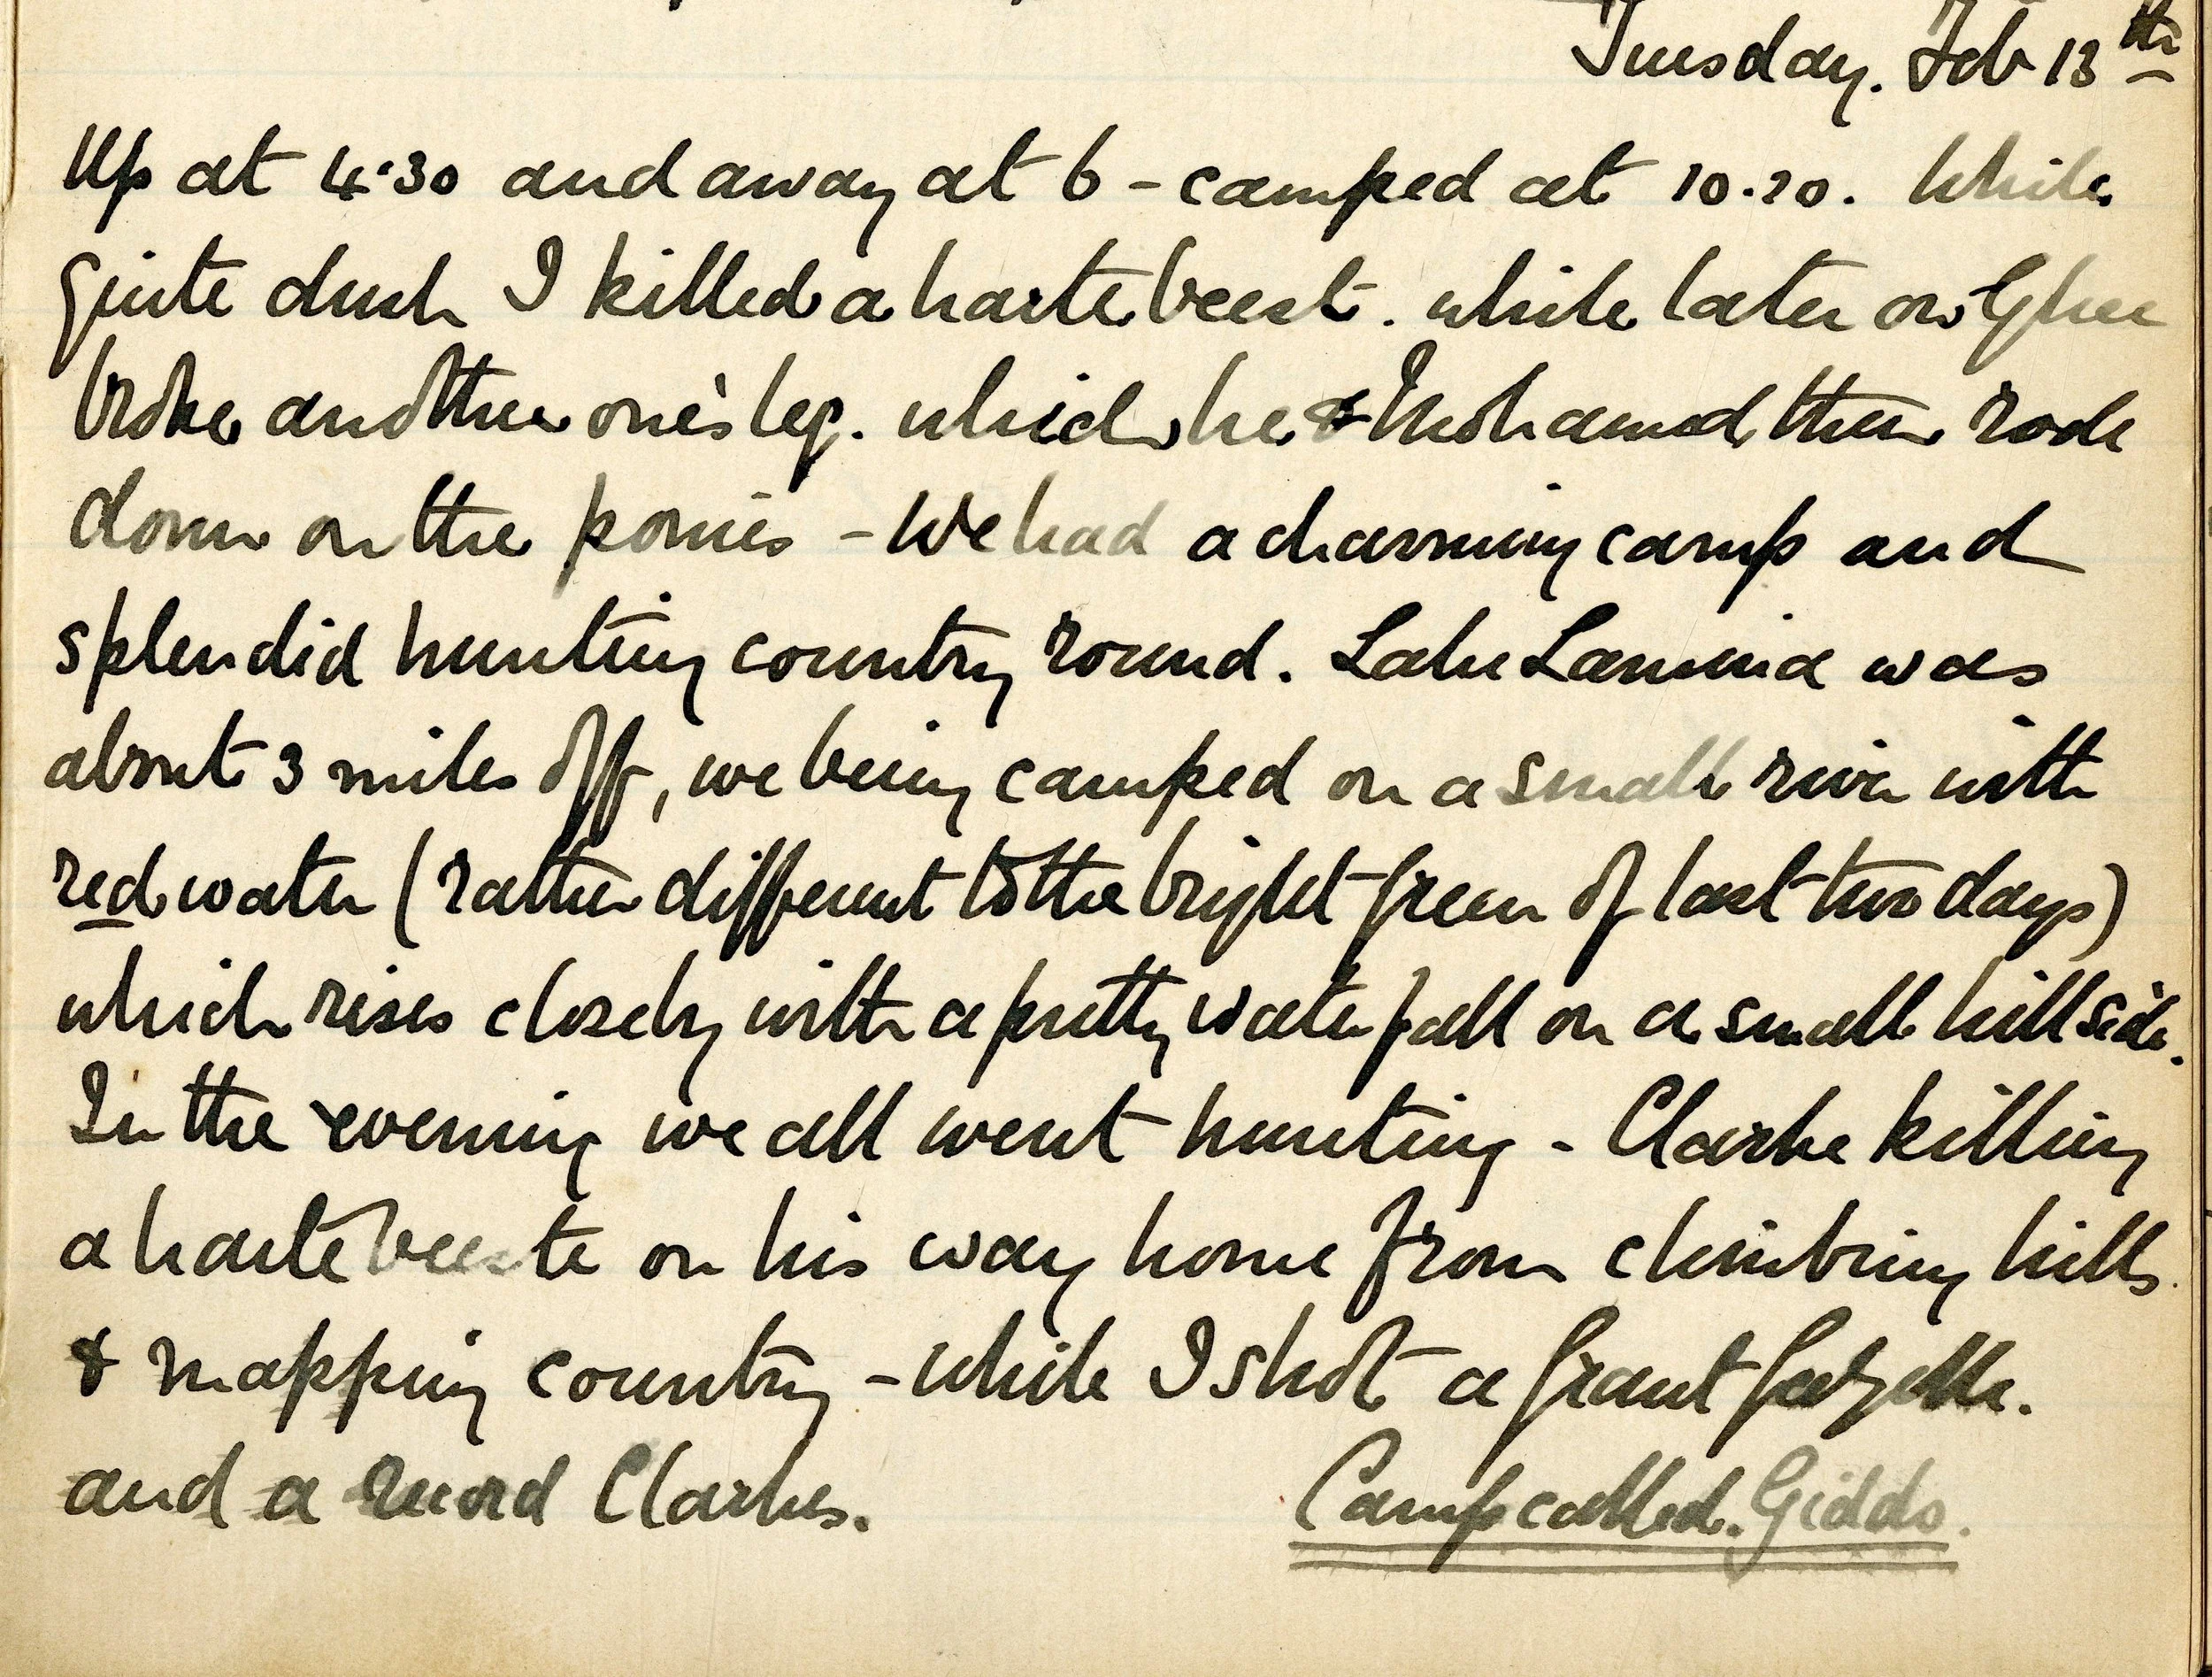 Tuesday. Feb 13th
Up at 4.30 and away at 6 - camped at 10.20. While
quite dusk I killed a hartebeest. while later on
broke another one's leg. which he & Mohamed then rode
down on the ponies - We had a charming camp and
splendid hunting country round. Lake Lamina was
about 3 miles off, we being camped on a small river with
red water (rather different to the bright green of last two days)
which rises closely with a pretty waterfall on a small hillside.
In the evening we all went hunting - Clarke killing
a hartebeeste on his way home from climbing hills
& mapping country - while I shot a grant gazelle.
and a record Clarkes.
Camp called. Giddo.